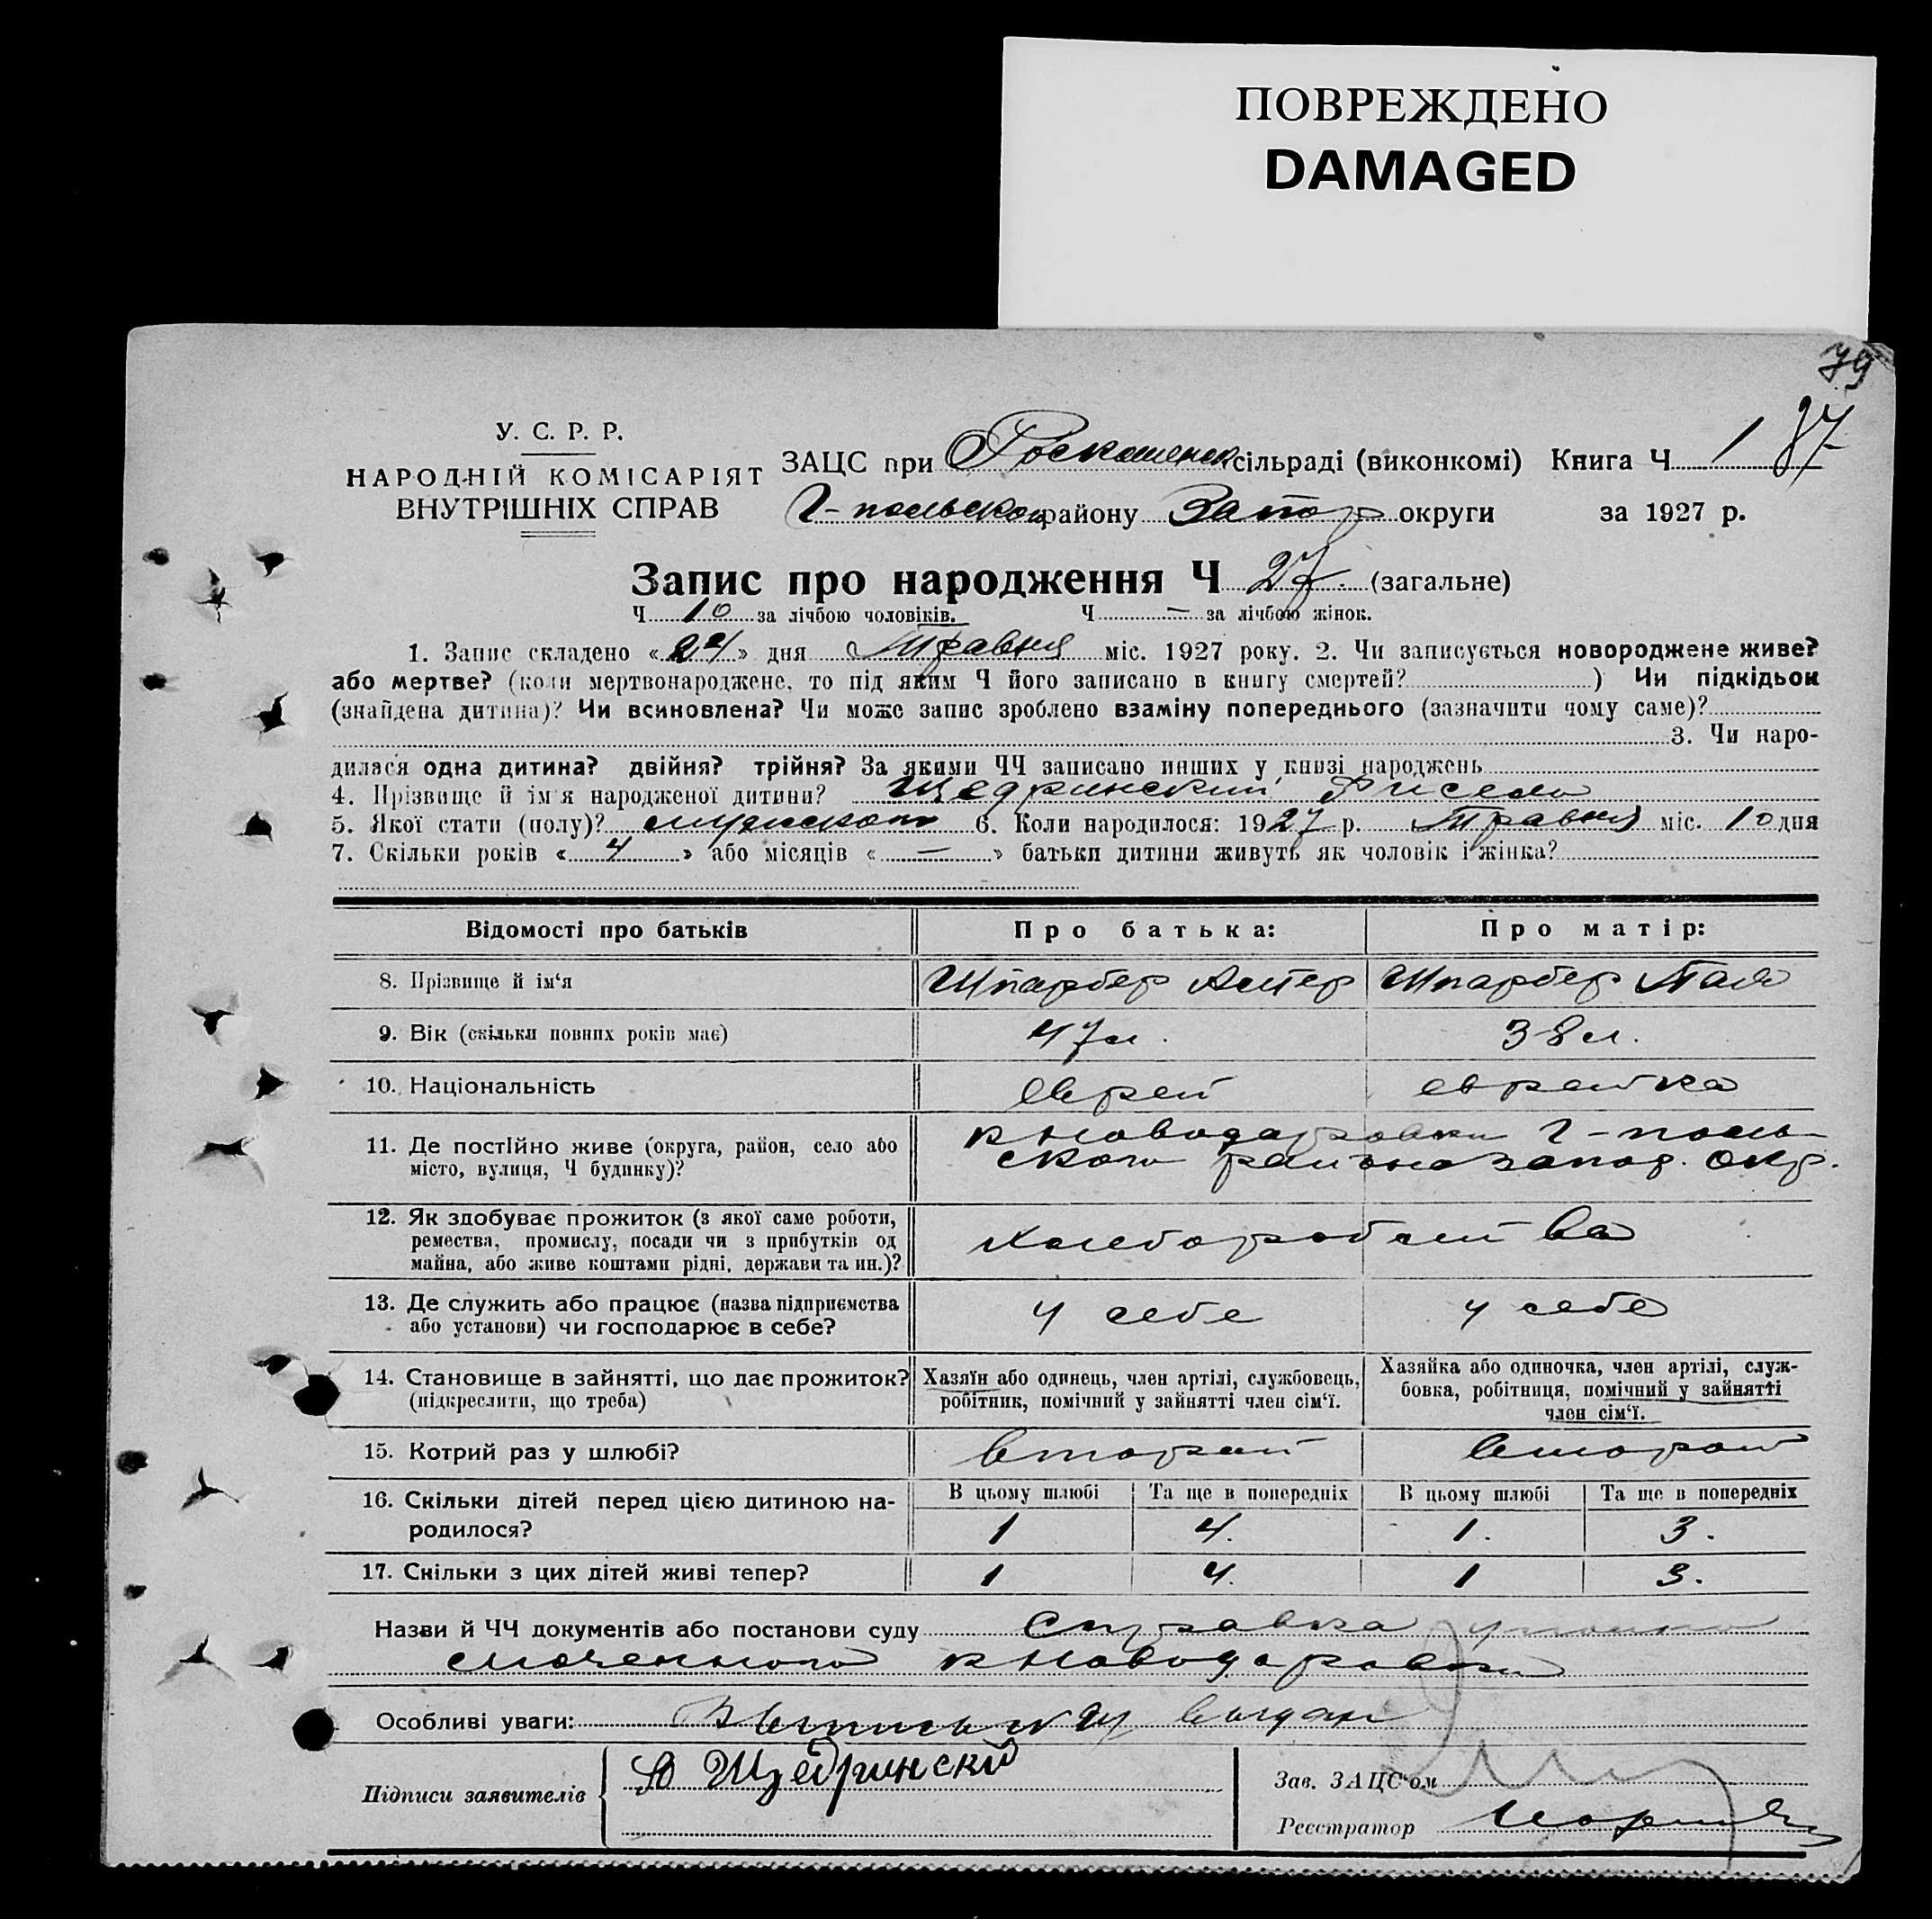 ПОВРЕЖДЕНО
DAMAGED
79
У. С. Р. Р.
НАРОДНІЙ КОМІСАРІЯТ
ВНУТРІШНІХ СПРАВ
ЗАЦС при сільраді (виконкомі) Книга Ч 1 87
району Запор округи за 1927 р.
Запис про народження Ч 27. (загальне)
Ч 10 за лічбою чоловіків. Ч — за лічбою жінок.
1. Запис складено «24» дня Травня міс. 1927 року. 2. Чи записується новороджене живе?
або мертве? (коли мертвонароджене, то під яким Ч його записано в книгу смертей? ) Чи підкідьок
(знайдена дитина)? Чи всиновлена? Чи може запис зроблено взаміну попереднього (зазначити чому саме)?
3. Чи наро-
дилася одна дитина? двійня? трійня? За якими ЧЧ записано инших у книзі народжень
4. Прізвище й ім'я народженої дитини? Щедринский
5. Якої стати (полу)? мужского 6. Коли народилося: 1927 р. Травня міс. 10 дня
7. Скільки років «4» або місяців «—» батьки дитини живуть як чоловік і жінка?
Відомості про батьків Про батька: Про матір:
8. Прізвище й ім'я Шпарбер Ашер Шпарбер
9. Вік (скільки повних років має) 47 л. 38 л.
10. Національність еврей еврейка
11. Де постійно живе (округа, район, село або
місто, вулиця, Ч будинку)?
к Новодаровки Г-поль-
ского района запор. окр.
12. Як здобуває прожиток (з якої саме роботи,
ремества, промислу, посади чи з прибутків од
майна, або живе коштами рідні, держави та ин.)?
13. Де служить або працює (назва підприємства
або установи) чи господарює в себе?
у себе у себе
14. Становище в зайнятті, що дає прожиток?
(підкреслити, що треба)
Хазяїн або одинець, член артілі, службовець,
робітник, помічний у зайнятті член сім'ї.
Хазяйка або одиночка, член артілі, служ-
бовка, робітниця, помічний у зайнятті
член сім'ї.
15. Котрий раз у шлюбі? второй второй
16. Скільки дітей перед цією дитиною на-
родилося?
В цьому шлюбі Та ще в попередніх В цьому шлюбі Та ще в попередніх
1 4. 1. 3.
17. Скільки з цих дітей живі тепер? 1 4. 1 3.
Назви й ЧЧ документів або постанови суду Справка уполно
моченного к Новодаровки
Особливі уваги:
Підписи заявителів Щедринский
Зав. ЗАЦС'ом
Реєстратор